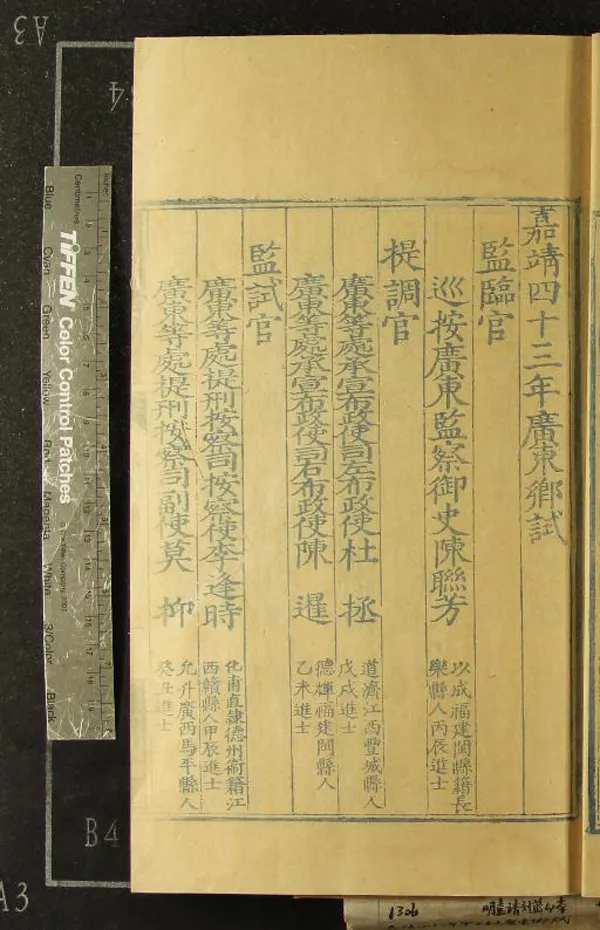 嘉靖四十三年廣東鄉試
監臨官
巡按廣東監察御史陳聯芳
以成福建閩縣籍長
樂縣人丙辰進士
提調官
廣東等處承宣布政使司左布政使杜 拯
道濟江西豐城縣人
戊戌進士
廣東等處承宣布政使司右布政使陳 暹
德輝福建閩縣人
乙未進士
監試官
廣東等處提刑按察司按察使李逢時
化甫直隸德州衛籍江
西贛縣人甲辰進士
廣東等處提刑按察司副使莫 抑
允升廣西馬平縣人
癸丑進士
A3
B4
A3
Centimetres
TIFFEN Color Control Patches
Blue
Cyan
Green
Yellow
Red
Magenta
White
3/Color
Black
1306